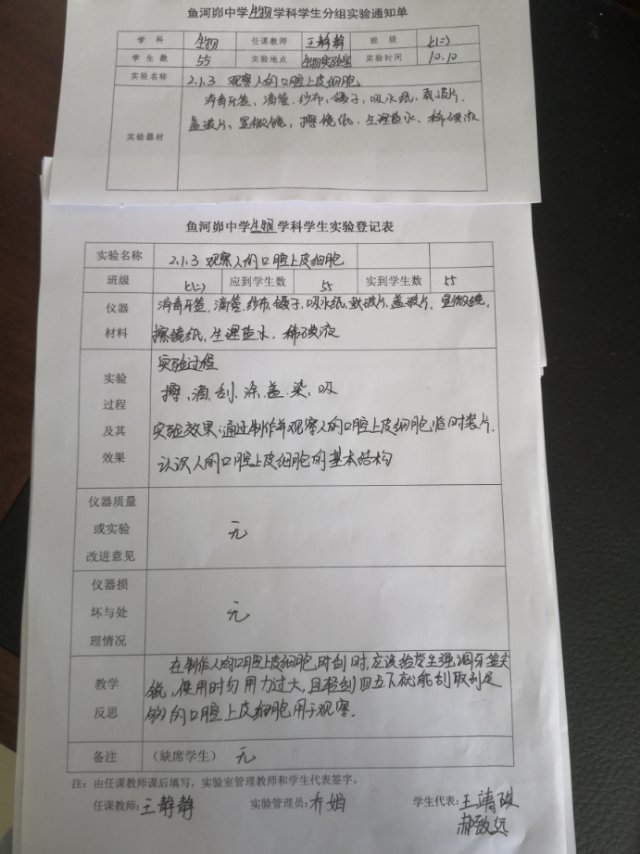 鱼河峁中学生物学科学生分组实验通知单
学科 生物 任课教师 王静静 班级 七(二)
学生数 55 实验地点 生物实验室 实验时间 10.10
实验名称 2.1.3 观察人的口腔上皮细胞
实验器材 消毒牙签、滴管、纱布、镊子、吸水纸、载玻片、
盖玻片、显微镜、擦镜纸、生理盐水、稀碘液
鱼河峁中学生物学科学生实验登记表
实验名称 2.1.3 观察人的口腔上皮细胞
班级 七(二) 应到学生数 55 实到学生数 55
仪器 消毒牙签、滴管、纱布、镊子、吸水纸、载玻片、盖玻片、显微镜、
材料 擦镜纸、生理盐水、稀碘液
实验过程
实验 擦、滴、刮、涂、盖、染、吸
过程
及其 实验效果:通过制作并观察人的口腔上皮细胞临时装片,
效果 认识人的口腔上皮细胞的基本结构
仪器质量
或实验 无
改进意见
仪器损
坏与处 无
理情况
在制作人的口腔上皮细胞,时刮时,应该给学生强调牙签尖
教学 锐,使用时勿用力过大,且轻刮四五下就能刮取到足
反思 够的口腔上皮细胞用于观察。
备注 (缺席学生) 无
注:由任课教师课后填写,实验室管理教师和学生代表签字。
任课教师:王静静 实验管理员:乔娟 学生代表:王靖
郝致远